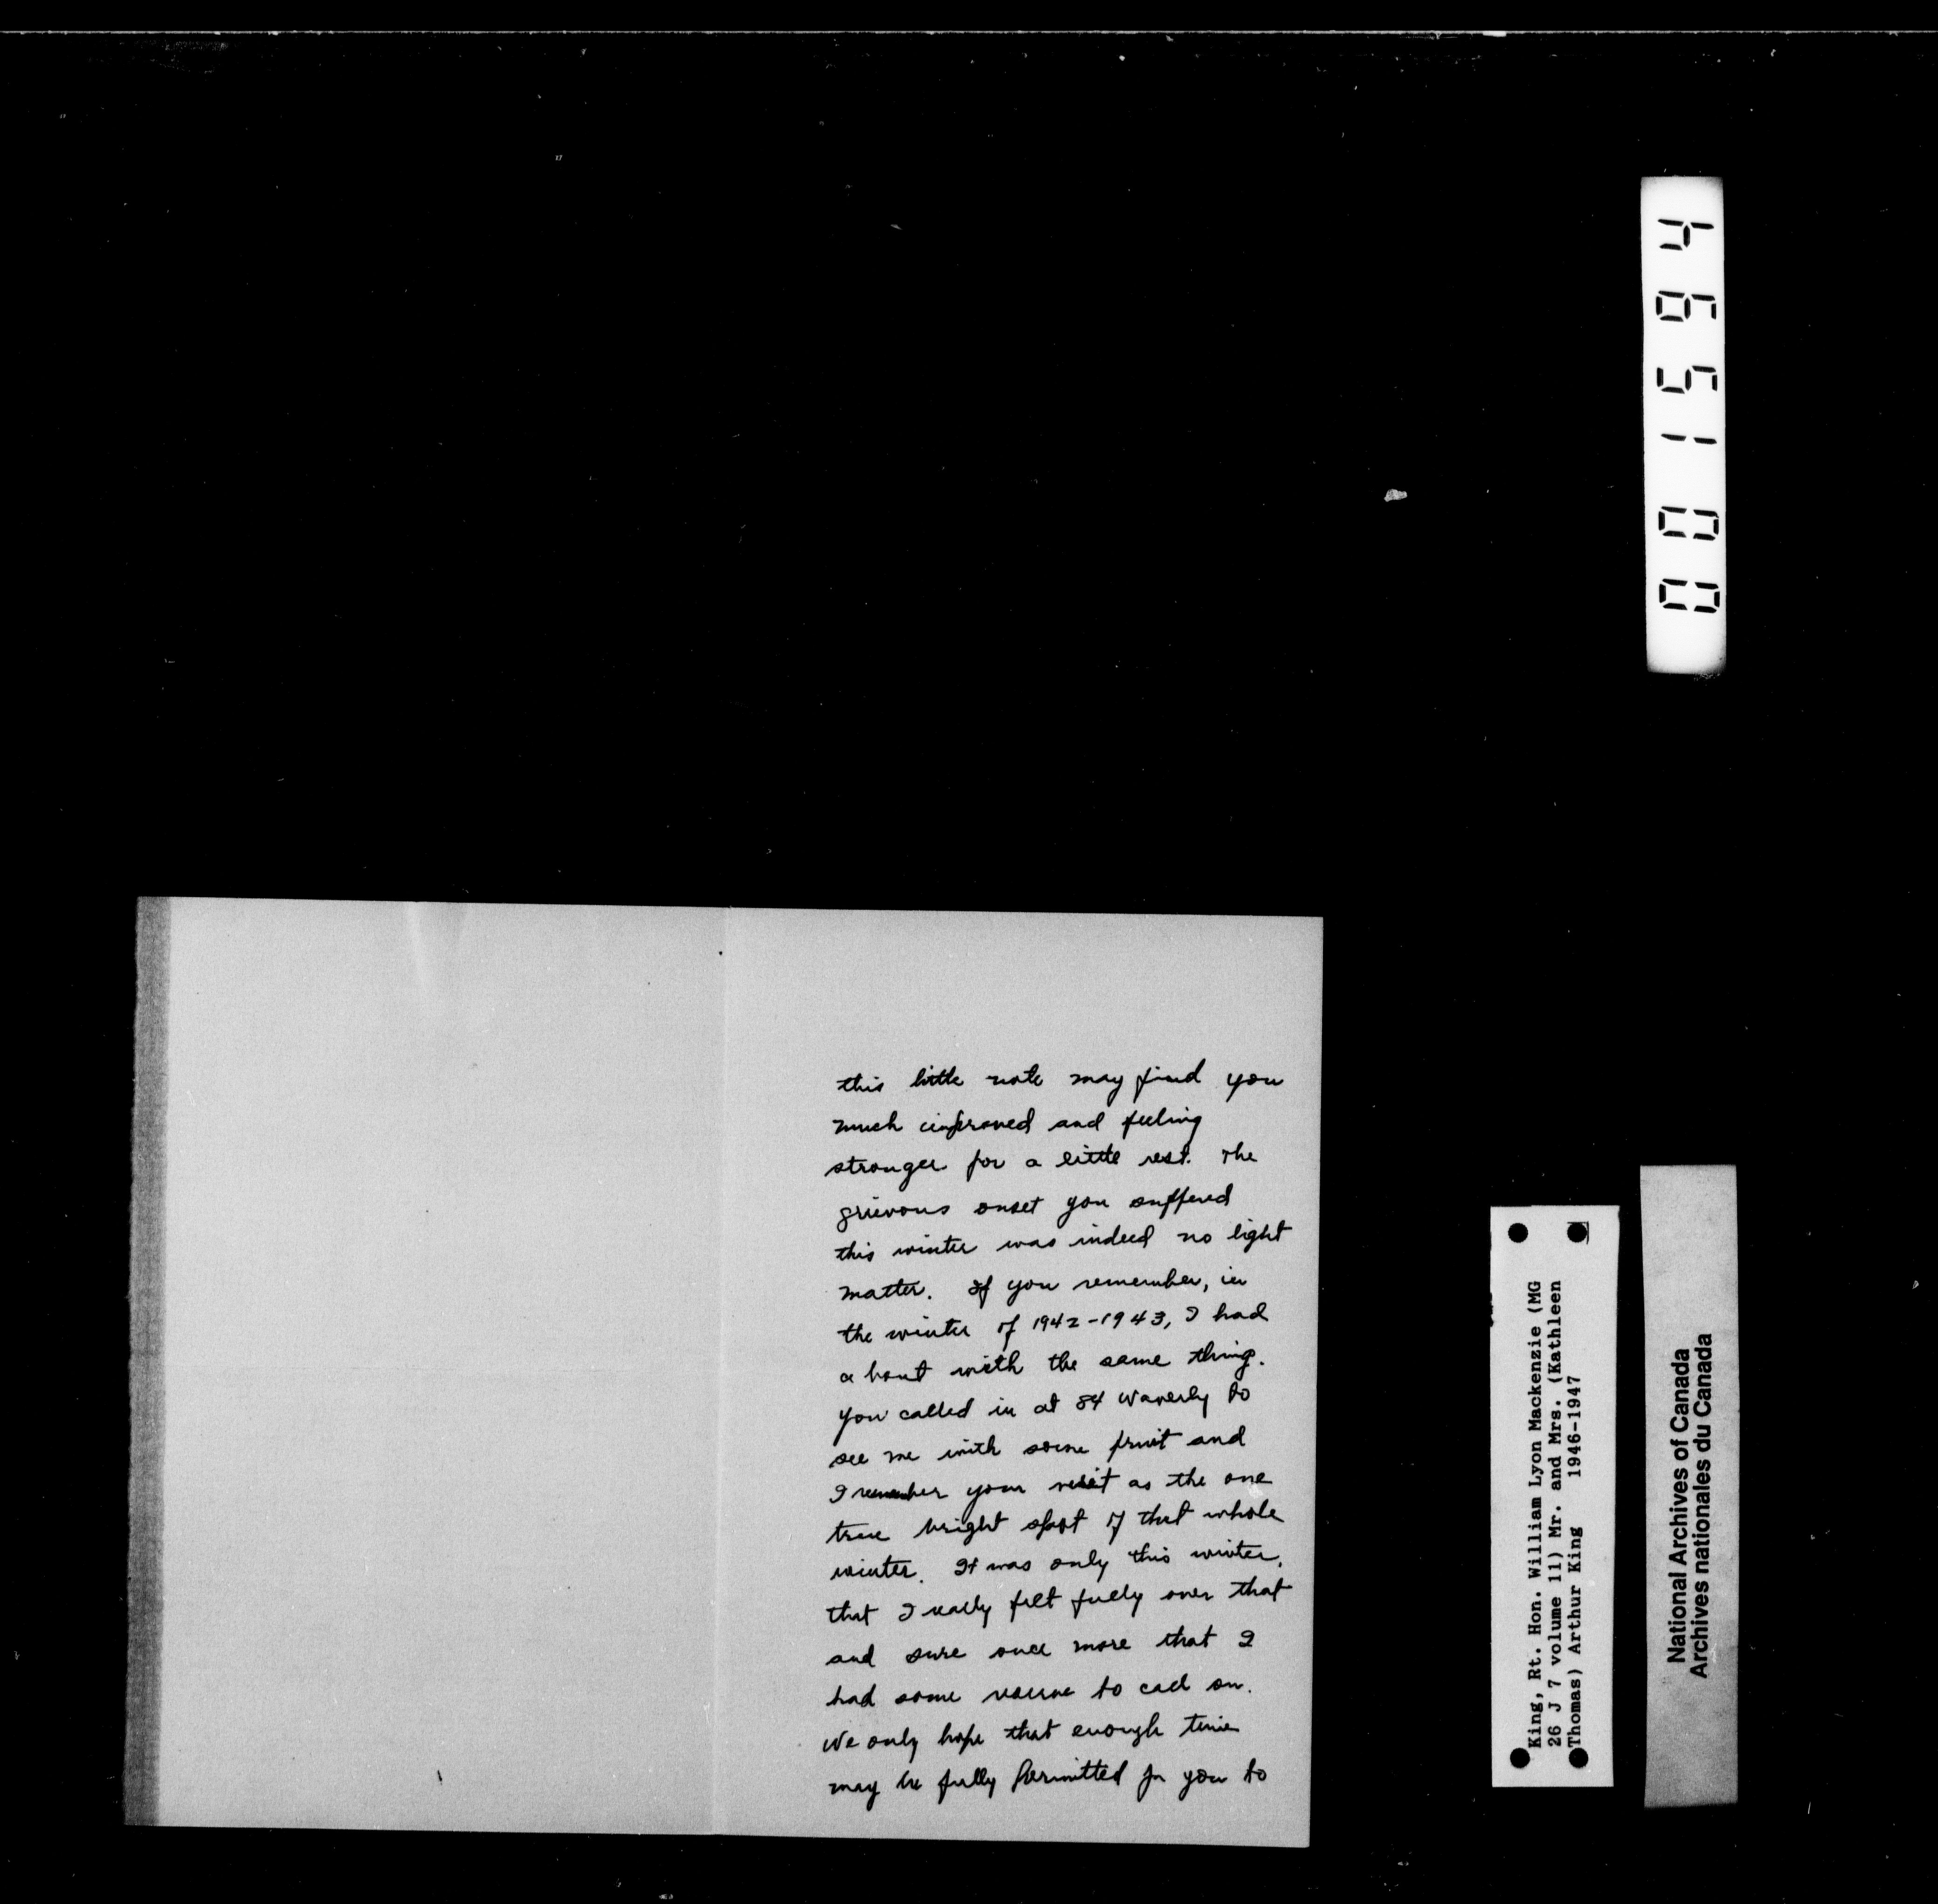 this little note may find you
much improved and feeling
stronger for a little rest. The
grievous onset you suffered
this winter was indeed no light
matter. If you remember, in
the winter of 1942-1943, I had
a bout with the same thing.
You called in at 84 Waverly to
see me with some fruit and
I remember your visit as the one
true bright spot of that whole
winter. It was only this winter,
that I really felt fully over that
and sure once more that I
had some to call on.
We only hope that enough time
may be fully permitted for you to
001594
King, Rt. Hon. William Lyon Mackenzie (MG
26 J 7 volume 11) Mr. and Mrs. (Kathleen
Thomas) Arthur King 1946-1947
National Archives of Canada
Archives nationales du Canada